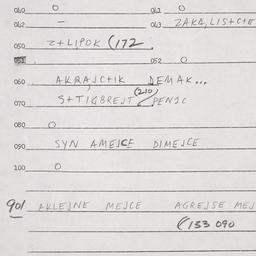 040 O 041 O
042 – 043 ZAKA, LISTCTE
050 Z+LIPOK (172.
051 052 O
060 AKRAJCTIK DEMAK...
070 S+TIGBREJT (210) PENIC
080 O
090 SYN AMEJCE DIMEJCE
100 O
901 AKLEJNE MEJCE AGREJSE MEJ
(133 090